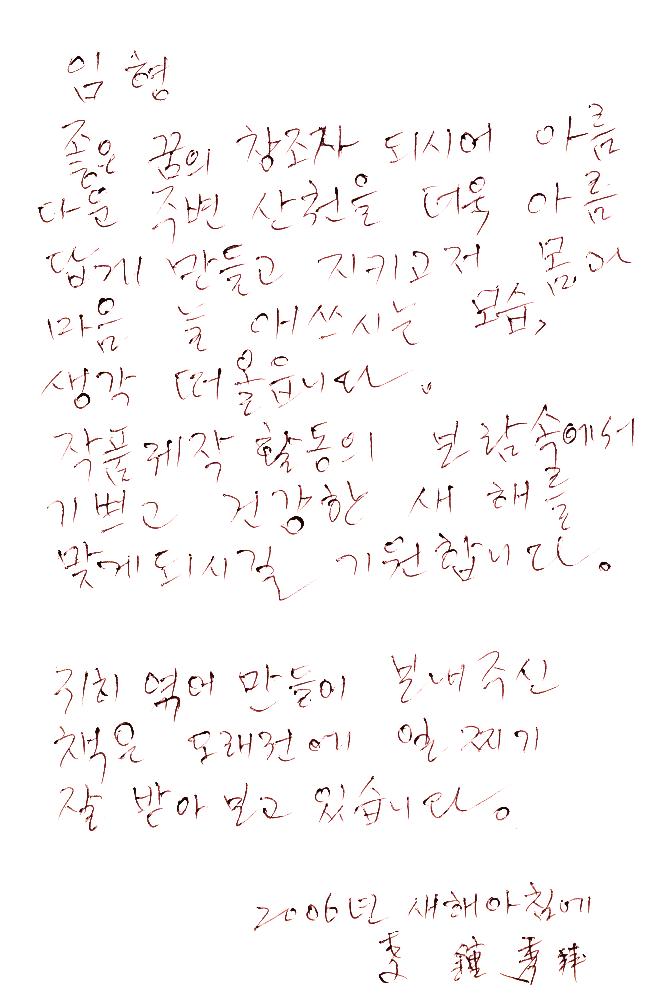 임 형
좋은 꿈의 창조자 되시어 아름
다운 주변 산천을 더욱 아름
답게 만들고 지키고저 몸과
마음 늘 애쓰시는 모습,
생각 떠올립니다.
작품제작 활동의 보람속에서
기쁘고 건강한 새 해를
맞게되시길 기원합니다.
엮어 만들어 보내주신
책은 오래전에 일찌기
잘 받아 보고 있습니다.
2006년 새해아침에
李 鍾 秀 拜